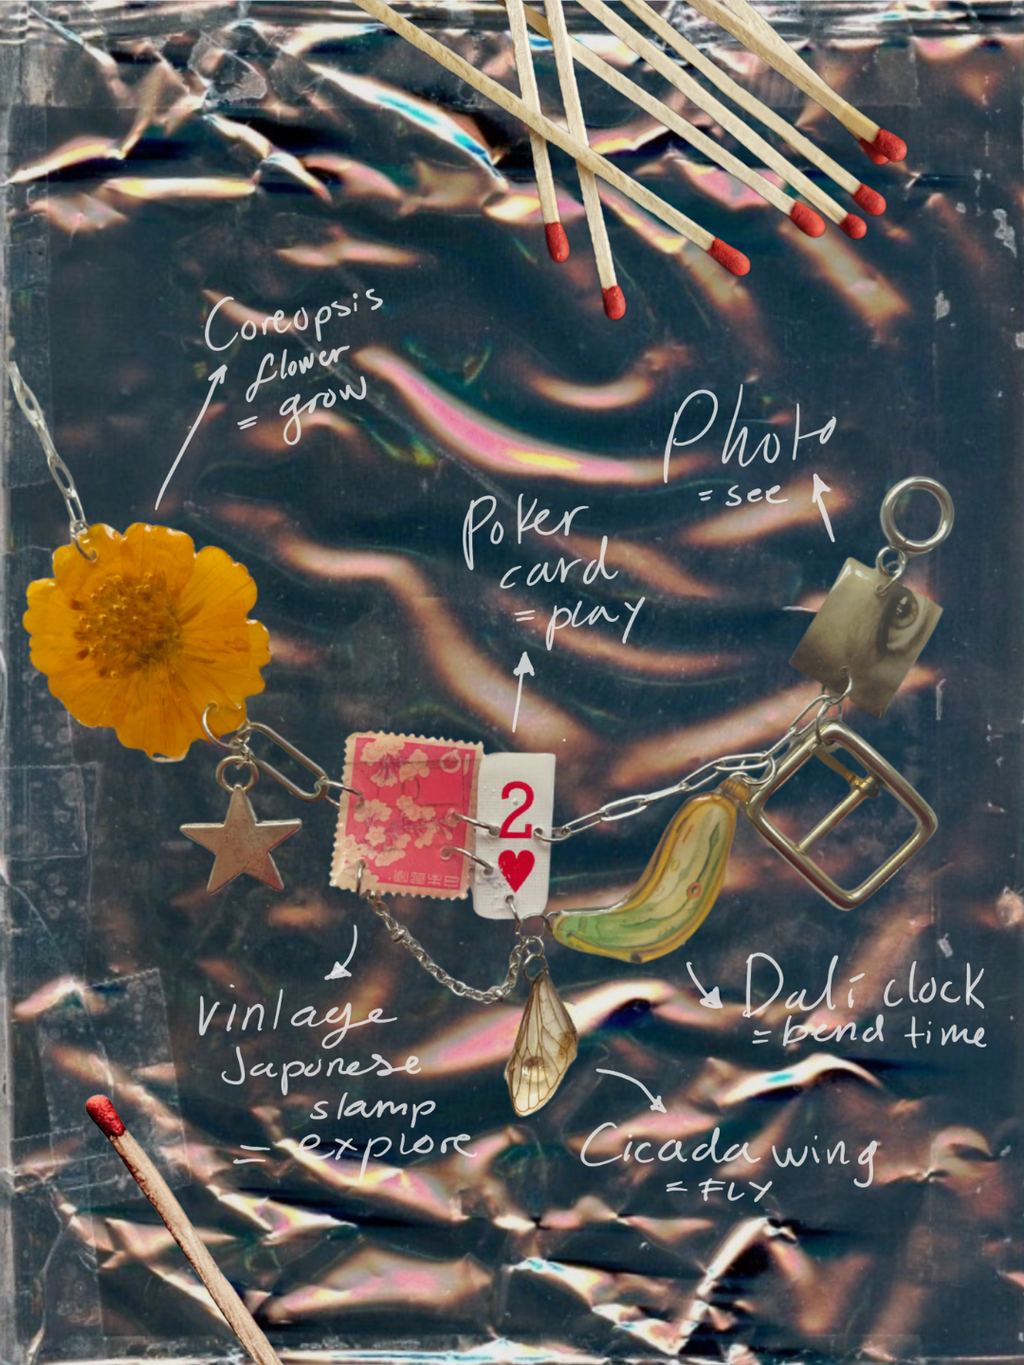 Coreopsis
flower
= grow
Photo
= see
Poker
card
= play
2
Dalí clock
= bend time
Vintage
Japanese
stamp
= explore
Cicada wing
= FLY